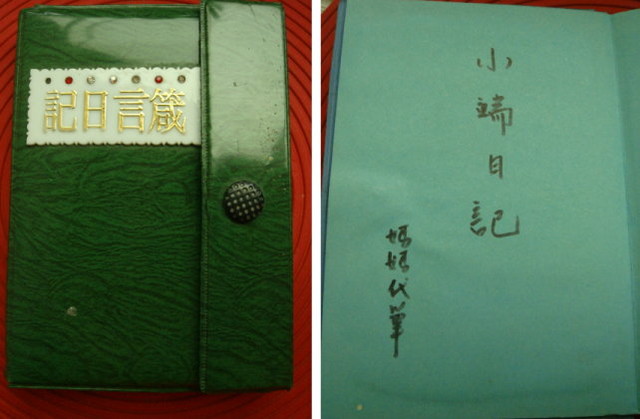 箴言日記
小端日記
媽媽代筆